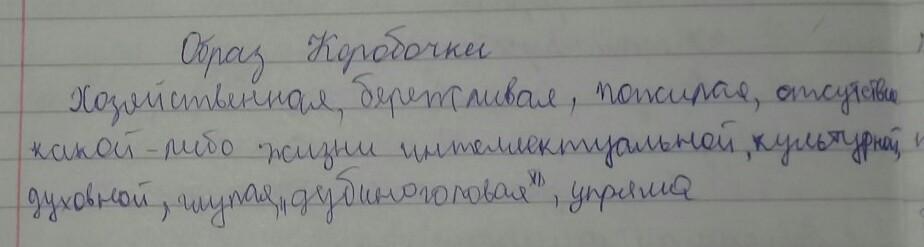 Образ Коробочки
Хозяйственная, бережливая, пожилая, отсутствие
какой-либо жизни интеллектуальной, культурной,
духовной, глупая, „дубиноголовая", упряма